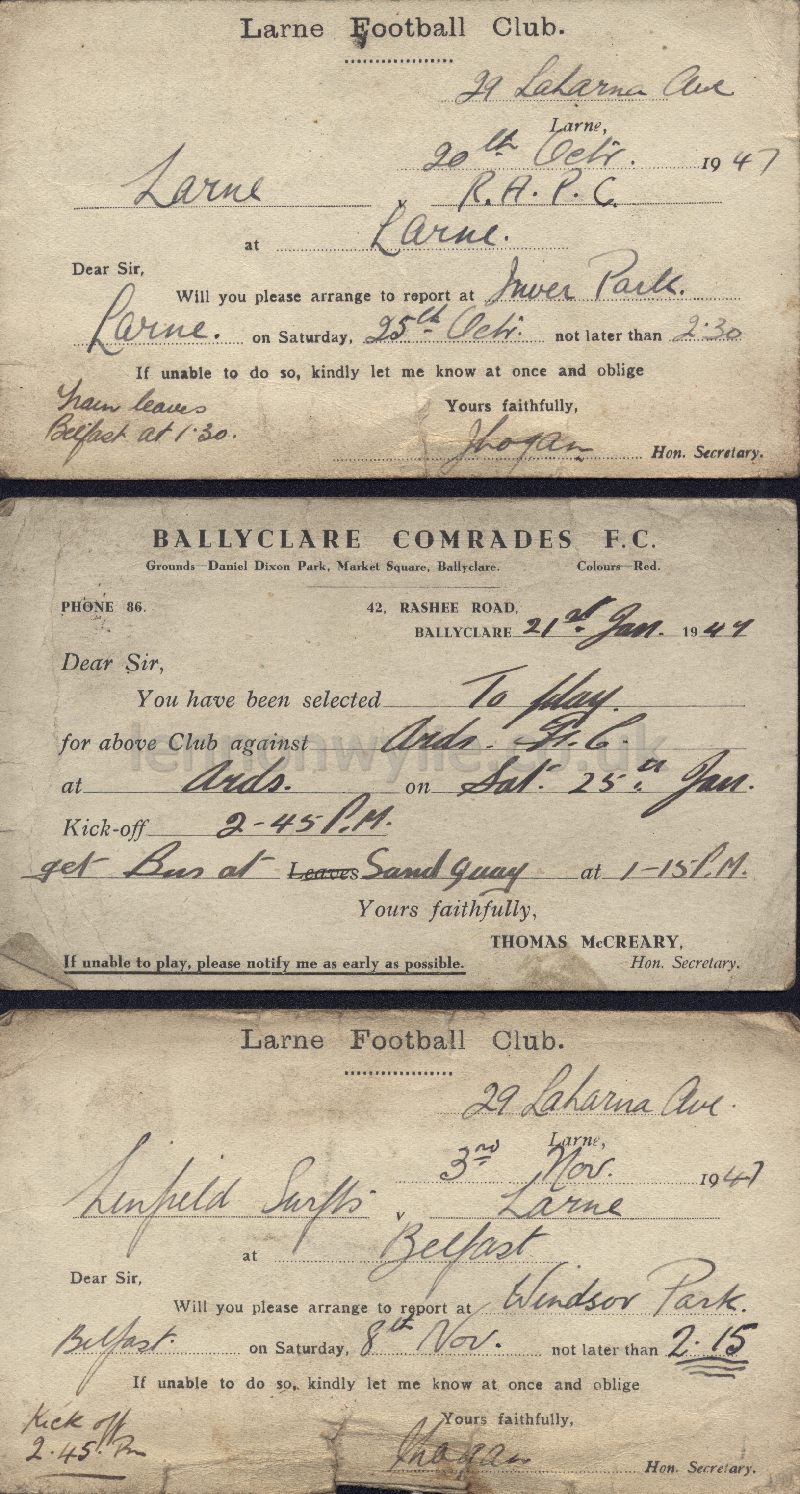 Larne Football Club.
29 Laharna Ave
Larne,
20th Octr. 1947
Larne v R.A.P.C.
at Larne.
Dear Sir,
Will you please arrange to report at Inver Park.
Larne. on Saturday, 25th Octr. not later than 2.30
If unable to do so, kindly let me know at once and oblige
Train leaves Yours faithfully,
Belfast at 1.30.
JHogan Hon. Secretary.
BALLYCLARE COMRADES F.C.
Grounds—Daniel Dixon Park, Market Square, Ballyclare. Colours—Red.
PHONE 86. 42, RASHEE ROAD,
BALLYCLARE 21st Jan. 1947
Dear Sir,
You have been selected To play.
for above Club against Ards. F.C.
lemonwylie.co.uk
at Ards. on Sat. 25th Jan.
Kick-off 2-45 P.M.
get Bus at Leaves Sand Quay at 1-15 P.M.
Yours faithfully,
THOMAS McCREARY,
If unable to play, please notify me as early as possible. Hon. Secretary.
Larne Football Club.
29 Laharna Ave.
Larne,
3rd Nov. 1947
Linfield Swifts v Larne
at Belfast
Dear Sir,
Will you please arrange to report at Windsor Park.
Belfast. on Saturday, 8th Nov. not later than 2.15
If unable to do so, kindly let me know at once and oblige
Kick off Yours faithfully,
2.45. Pm
JHogan Hon. Secretary.